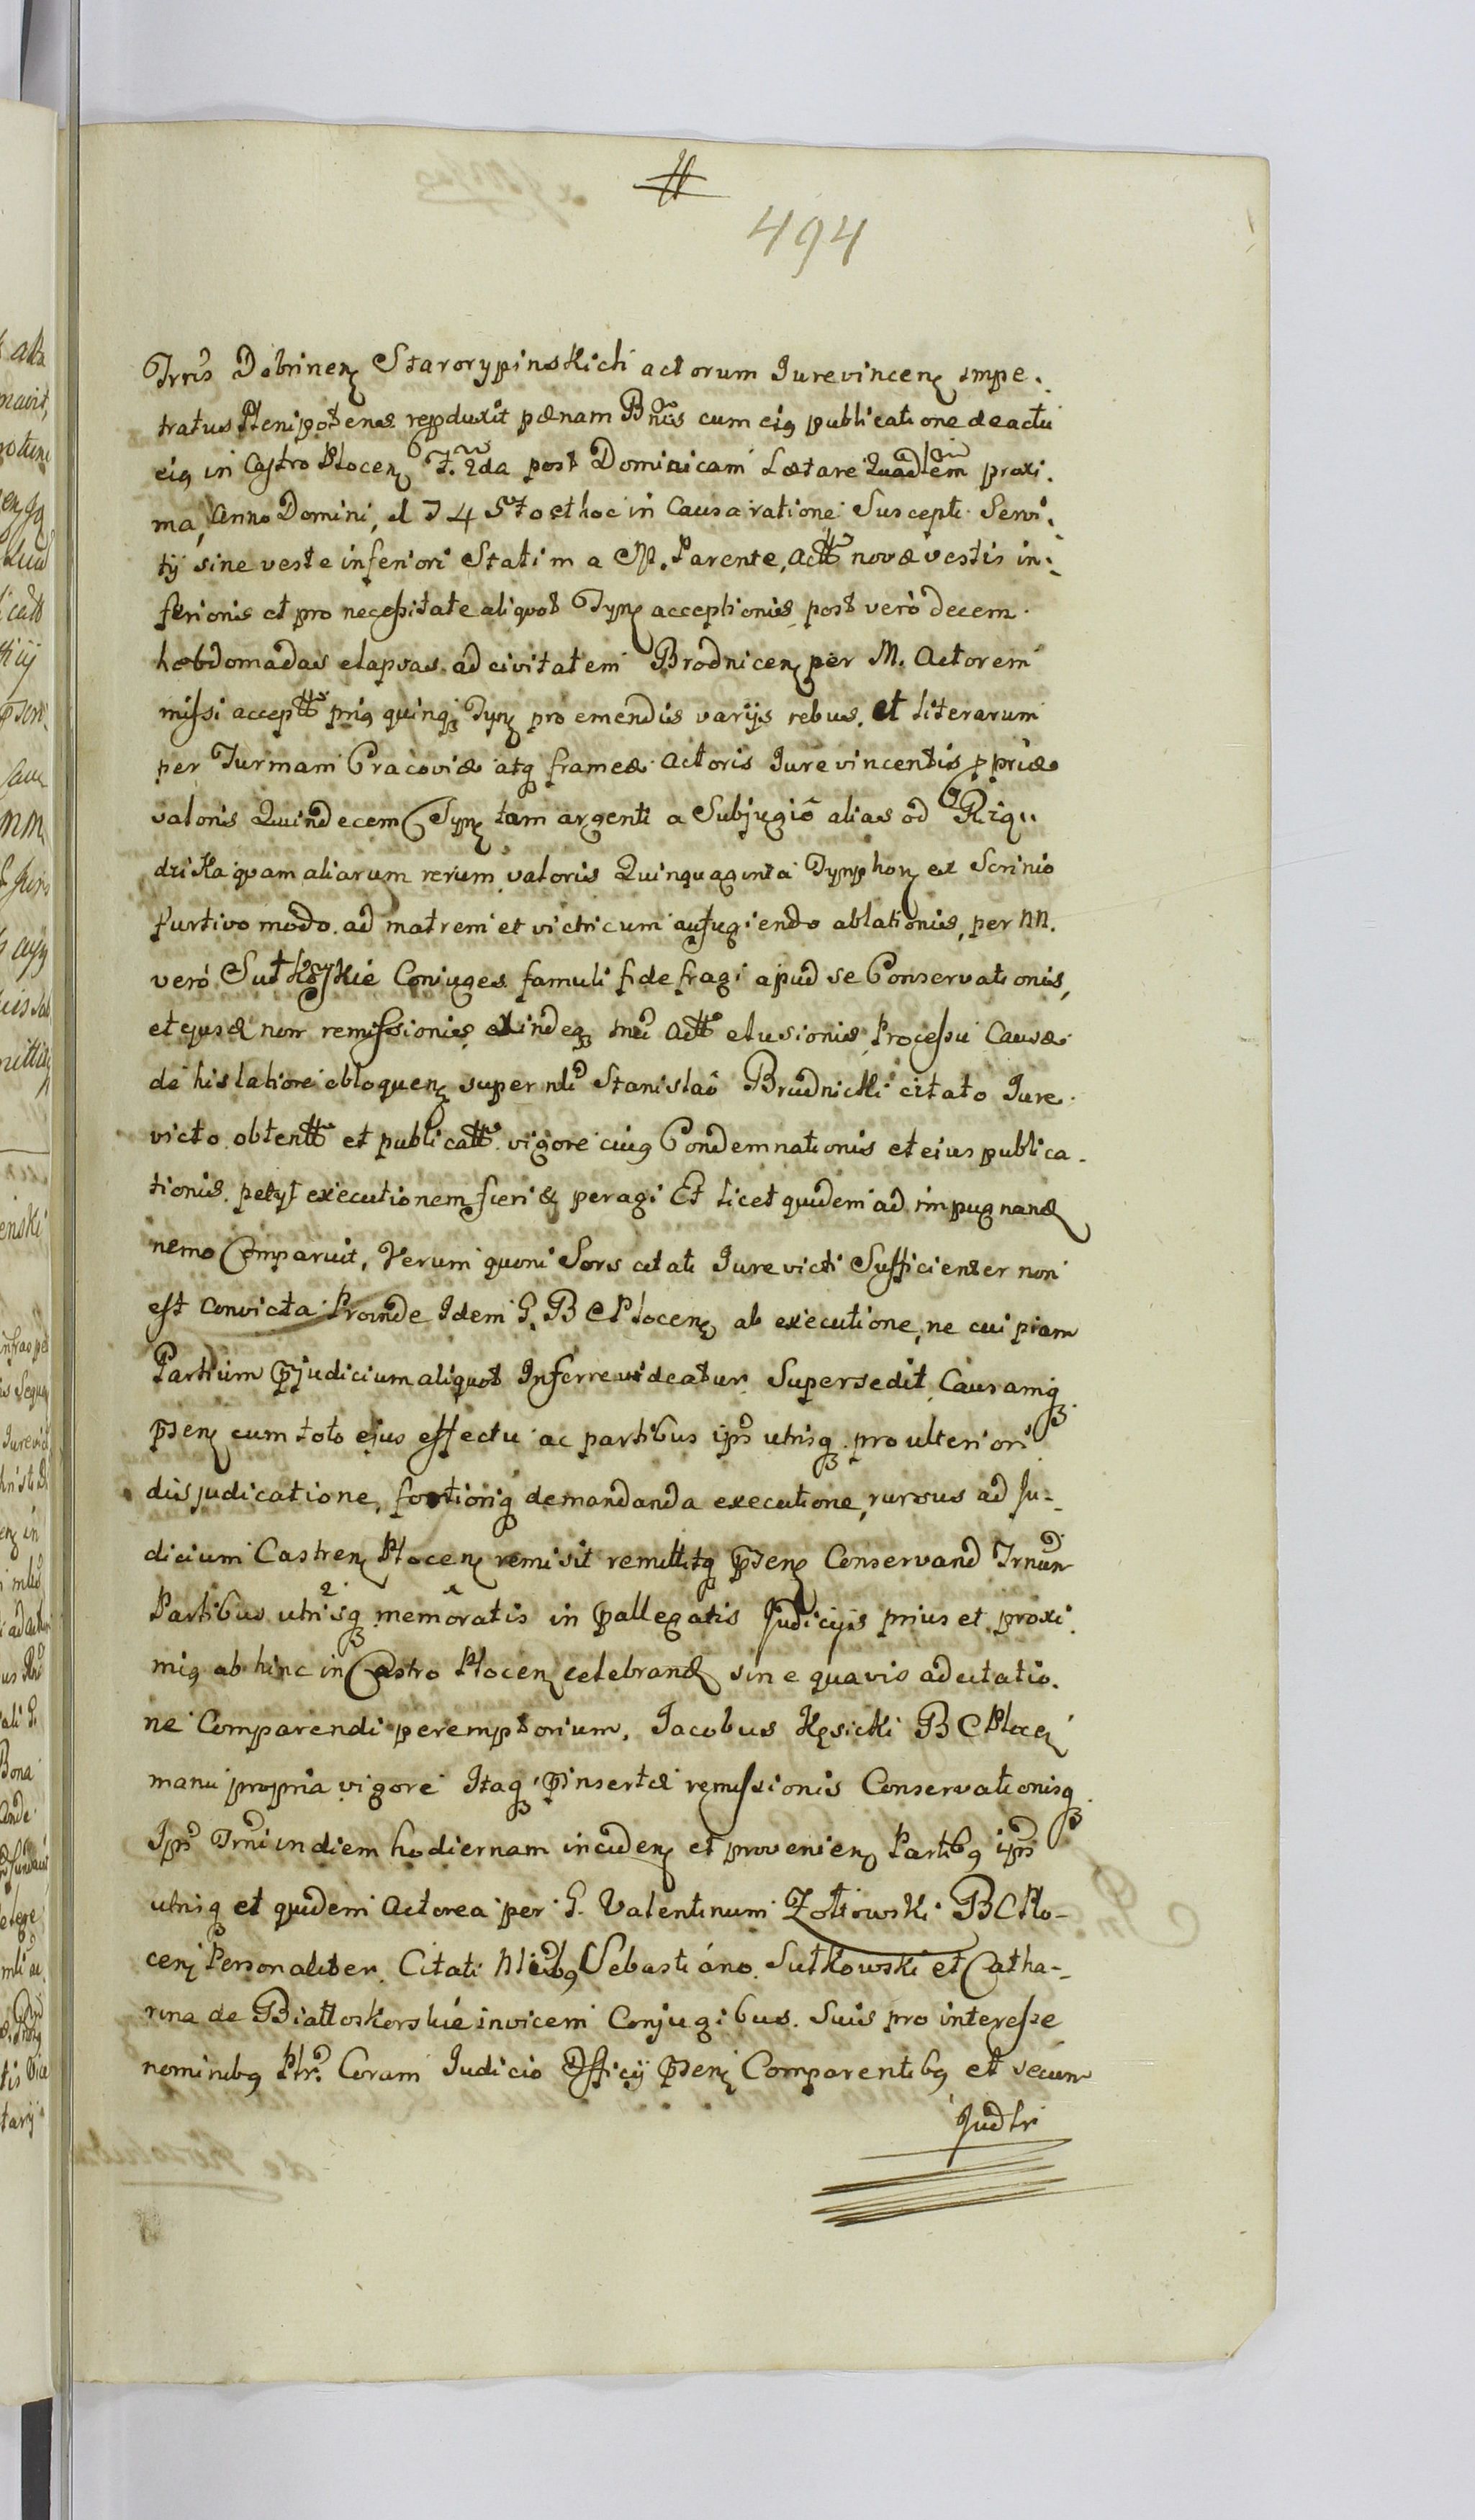 494
Trris Dobrinen Starorypinskich actorum Jurevincen impe.
tratus Plenipotens repduxit pœnam Bnis cum eiq publicatione de actu
eiq in Castro Plocen F. 2da post Dominicam Lœtare Quadlem proxi.
ma, Anno Domini, 174 5to et hoc in Causa ratione Suscepti Servi.
tij sine veste inferiori Statim a Parente, actt novæ vestis in.
ferionis et pro necessitate aliquot Tynf acceptionis post verò decem
hebdomadas elapsas ad civitatem Brodnicen per M. Actorem
missi acceptt priq quinqz Tynf pro emendis varijs rebus, et literarum
per Turmam Cracoviæ atq frameæ Actoris Jurevincentis ppriæ
valoris Quindecem Tynf tam argenti a Subjugio alias od
dzika quam aliarum rerum valoris Quinquaginta Tynphon ex Scrinio
furtivo modo ad matrem et victricum aufugiendo ablationis, per NN.
verò Sutkoskie Conjuges famuli fidefragi apud se Conservationis,
et ejusd non remissionis exindeqz actt elusionis Processu Causæ
de his latiore obloquen super Stanislaô Brudnicki citato Jure
victo obtentt et publicatt vigore cuiq Condemnationis et eius publica-
tionis petyt executionem fieri & peragi Et licet quidem ad impugnand
nemo Comparuit, Verum quoni Sors citati Jurevicti Sufficienter non
est Convicta Proinde Idem G. B C Plocen ab executione, ne cuipiam
Partium pjudicium aliquot Inferre videatur Supersedit, Causamqz
psen cum toto ejus effectu ac partibus ips utrisqz pro ulteriori
disjudicatione, fortioriqz demandanda executione, rursus ad Ju-
dicium Castren Plocen remisit remittitq psen Conservand Trnum
Partibus utrisqz memôratis in pallegatis Judicijs prius et proxi.
miq ab hinc in Castro Plocen celebrand sine quavis adcitatio.
ne Comparendi peremptorium. Jacobus Kęsicki B C Plocen
manu propria vigore Itaqz pinsertæ remissionis Conservationisqz
Ips Trni in diem hodiernam inciden et provenien Partibq ips
utrisq et quidem Actorea per G. Valentinum Zołtowski B C Plo-
cen Personaliter. Citati Sebastiano Sutkowski et Catha-
rina de Białłoskorskie invicem Conjugibus. Suis pro interesse
nominibq Coram Judicio Officij psen Comparentibq et secum
Judtr